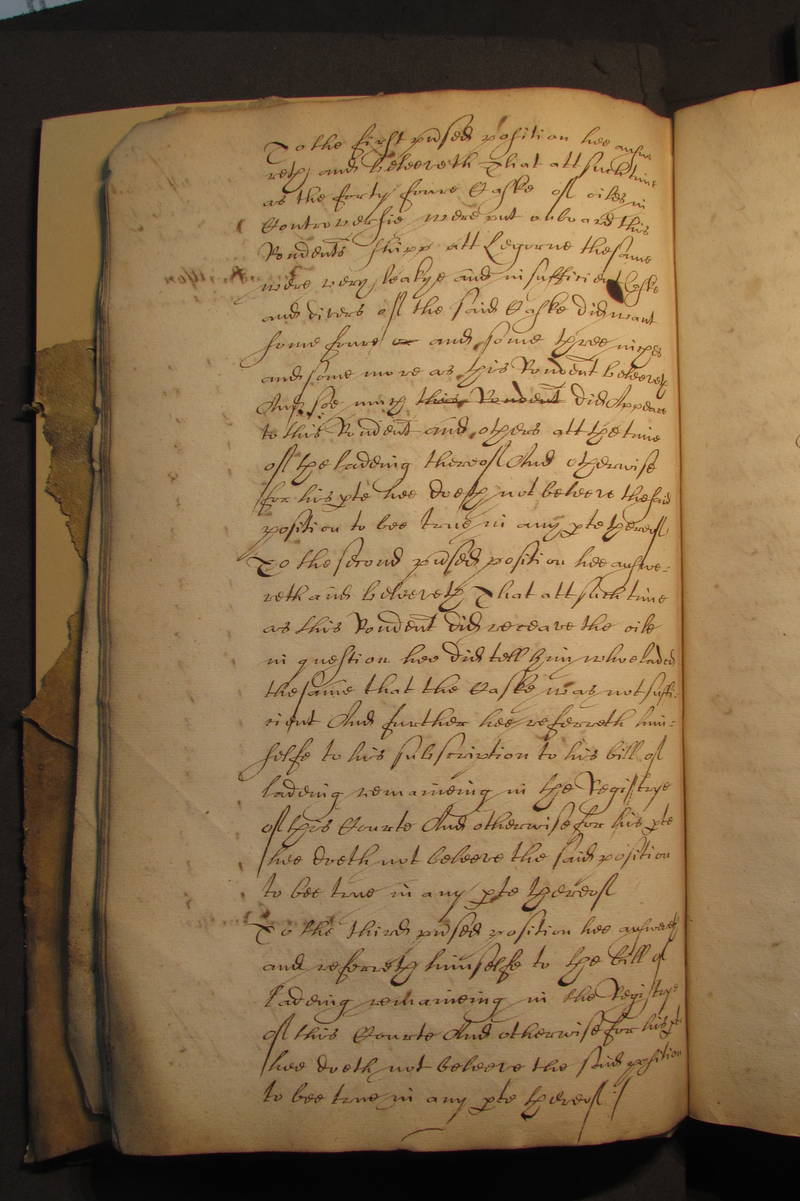 To the first pnsed position hee answe
reth and beleeveth That att such time
as the forty foure Caske of oiles in
Controversie were put aboard this
Rondents shipp att Legorne the same
were very leakye and insufficient Caske
and divers of the said Caske did want
some foure or and some three inches
and some more as this Rondent beleeveth
And soe much this Rondent did Appeare
to this Rondent and others att the time
of the ladeing thereof And otherwise
for his pte hee doeth not beleeve the said
position to bee true in any pte thereof
To the second pnsed position hee answe=
reth and beleeveth That att such time
as this Rondent did receave the oile
in question hee did tell him whoe laded
the same that the Caske was not suffi=
cient And further hee referreth him=
selfe to his subscription to his bill of
ladeing remaineing in the Registrye
of this Courte And otherwise for his pte
hee doeth not beleeve the said position
to bee true in any pte thereof
To the third pnsed position hee answereth
and referreth himselfe to the bill of
ladeing remaineing in the Registrye
of this Courte And otherwise for his pte
hee doeth not beleeve the said position
to bee true in any pte thereof :/